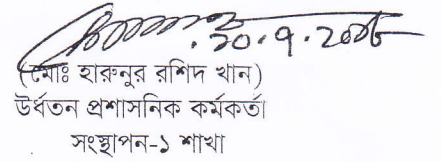 (মোঃ হারুনুর রশিদ খান)
উর্ধতন প্রশাসনিক কর্মকর্তা
সংস্থাপন-১ শাখা